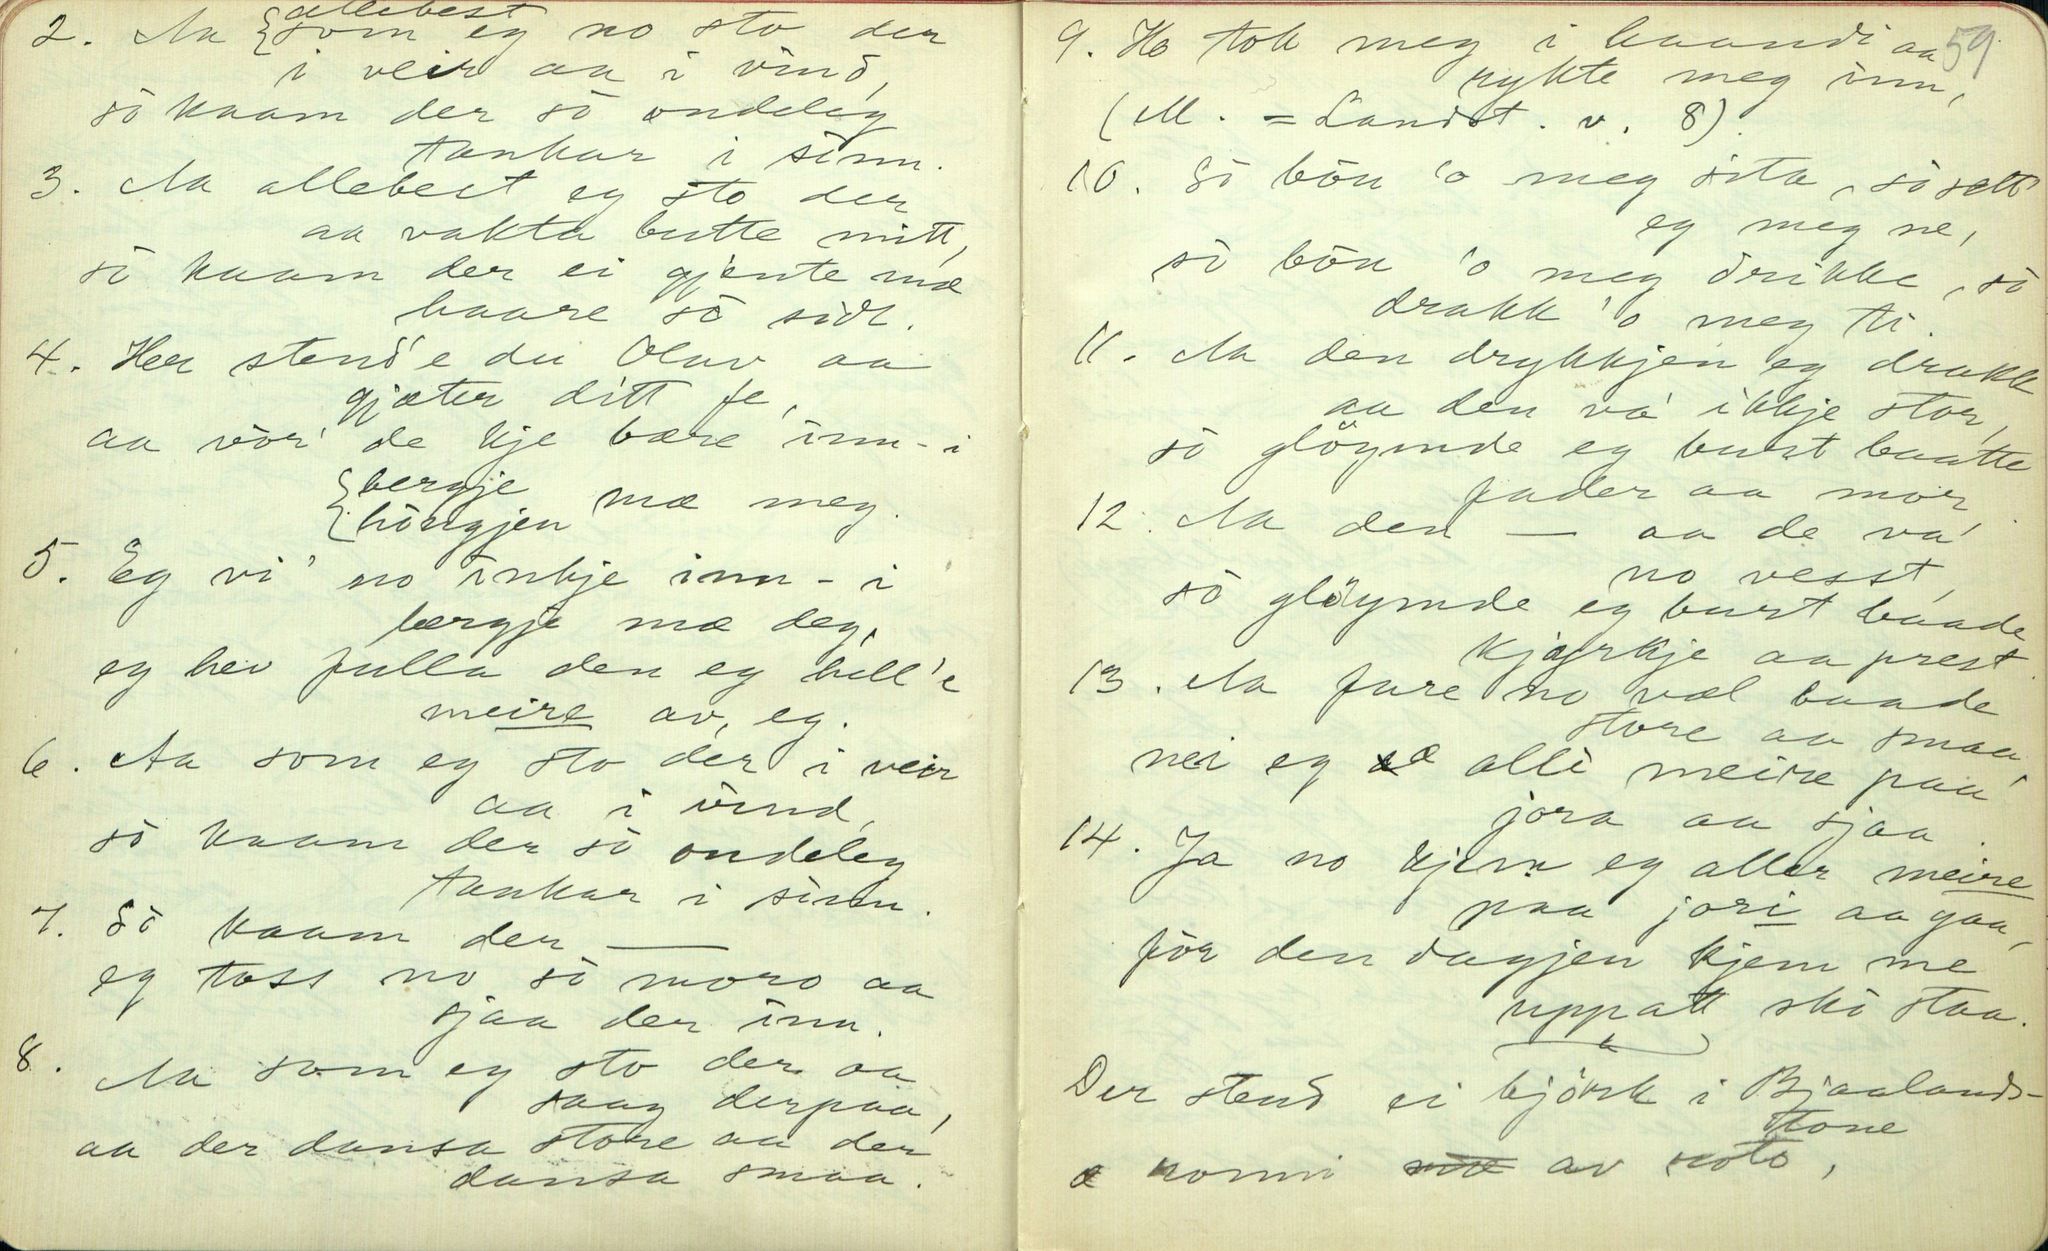 2. Aa {allebest
{som eg no sto der
i veir aa i vind,
sò kaam der sò ondeleg
tankar i sinn.
3. Aa allebest eg sto der
aa vakta butte mitt,
sò kaam der ei gjente mæ
haare sò sidt.
4. Her stend'e du Olav aa
gjæter ditt fe,
aa vòr' de kje bære inn-i
{bergje
{hòugjen mæ meg.
5. Eg vi' no inkje inn-i
bergje mæ deg,
eg hev fulla den eg hell'e
meire av, eg.
6. Aa som eg sto der i veir
aa i vind,
sò kaam der sò ondeleg
tankar i sinn.
7. Sò kaam der —
eg toss no sò moro aa
sjaa der inn.
8. Aa som eg sto der aa
saag derpaa,
aa der dansa store aa der
dansa smaa.
59
9. Ho tok meg i haandi aa
rykte meg inn,
(M. = Landst. v. 8).
10. Sò bòu 'o meg sita, sò sett'
eg meg ne,
sò bòu 'o meg drikke, sò
drakk 'o meg ti.
11. Aa den drykkjen eg drakk
aa den va' ikkje stor,
sò glöymde eg burt baatte
fader aa mor.
12. Aa den — aa de va'
no vesst,
sò glöymde eg burt baade
kjørkje aa prest.
13. Aa fare no væl baade
store aa smaa,
nei eg æ alli meire paa
jora aa sjaa.
14. Ja no kjem eg aller meire
paa jori aa gaa,
fòr den dagjen kjem me
uppatt ski staa.
Der stend ei bjòrk i Bjaalands-
tone
æ nomi av roto,